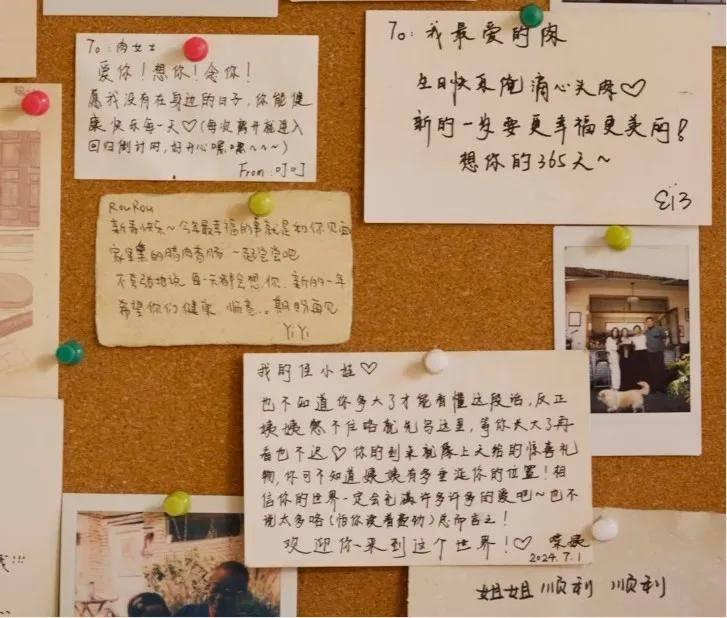 To：肉女士
爱你！想你！念你！
愿我没有在身边的日子，你能健
康快乐每一天♡(每次离开就进入
回归倒计时，好开心嘿嘿~~~)
From：叮叮
To：我最爱的肉
生日快乐俺滴心头肉♡
新的一岁要更幸福更美丽！
想你的365天~
RouRou
新春快乐~今年最幸福的事就是和你见面
家里的腊肉香肠 一起尝尝吧
不夸张地说 每一天都会想你.新的一年
希望你们健康 惬意。期盼再见
YiYi
我的任小姐♡
也不知道你多大了才能看懂这段话，反正
姨姨憋不住咯就先写这里，等你长大了再
看也不迟♡你的到来就像上天给的惊喜礼
物，你可不知道姨姨有多垂涎你的位置！相
信你的世界一定会充满许多许多的爱吧~也不
说太多咯(怕你读着费劲)总而言之！
欢迎你来到这个世界！♡
2024.7.1
姐姐顺利 顺利